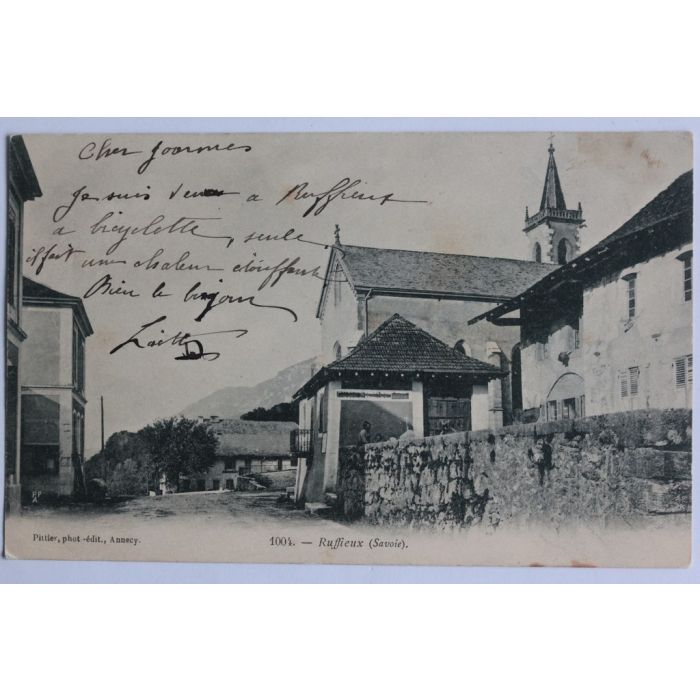 Cher
Je suis venue a Ruffieux
a bicyclette, seule
il fait un chaleur étouffante
Bien le bonjour
Pittier, phot.-édit., Annecy.
1004. — Ruffieux (Savoie).